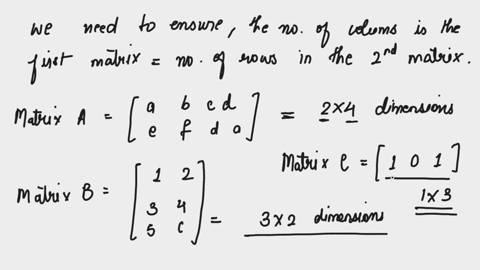 we need to ensure, the no. of colums is the
first matrix = no. of rows in the 2nd matrix.
Matrix A = [ a b c d
e f d a ] = 2x4 dimensions
Matrix C = [ 1 0 1 ]
1x3
Matrix B = [ 1 2
3 4
5 c ] = 3x2 dimensions